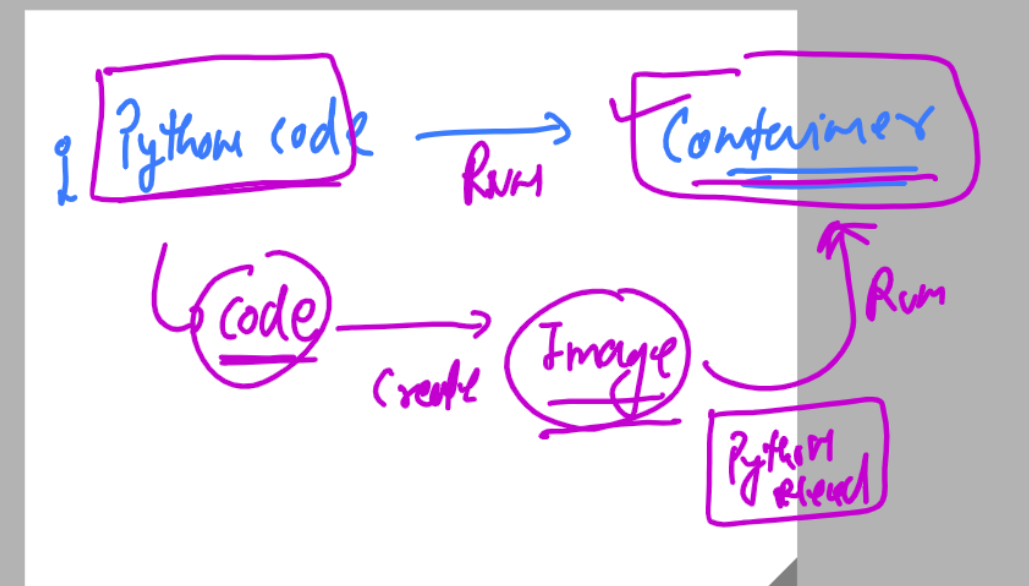 Python code
Run
Container
code
Create
Image
Run
Python